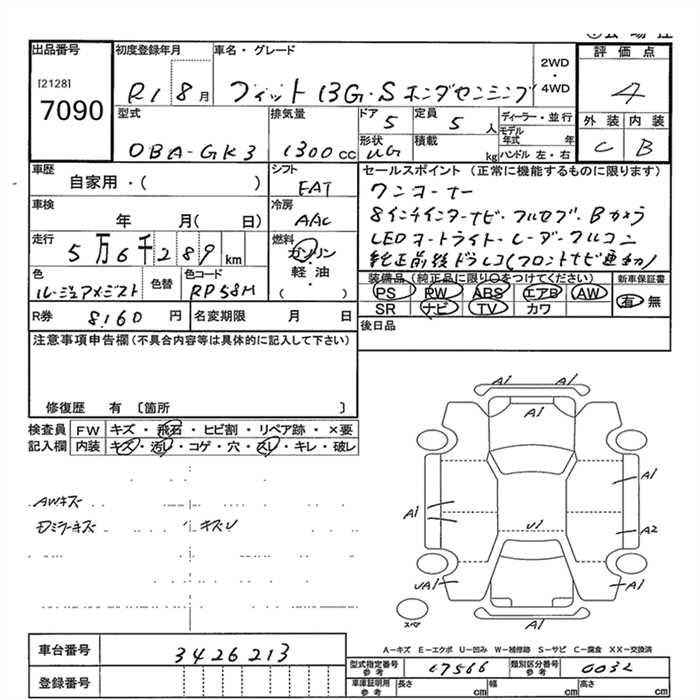 出品番号
[2128]
7090
初度登録年月
R1 8月
車名・グレード
フィット 13G・S ホンダセンシング
2WD
・
4WD
評価点
4
型式
DBA-GK3
排気量
1300cc
ドア
5
定員
5人
ディーラー・並行
モデル年式 年
ハンドル 左・右
形状
積載
kg
外装 内装
C B
車歴
自家用・( )
シフト
FAT
車検
年 月( 日)
冷房
AAC
走行
5万6千289km
燃料
ガソリン
・
軽・油
( )
色
ルージュアメジスト
色替
色コード
RP58M
R券 8160円
名変期限 月 日
セールスポイント (正常に機能するものに限ります)
ワンオーナー
8インチインターナビ・フルセグ・Bカメラ
LEDオートライト・レーダークルコン
純正前後ドラレコ(フロントナビ連動)
装備品(純正品に限り○をつけてください)
PS PW ABS エアB AW
SR ナビ TV カワ
新車保証書
有 無
後日品
注意事項申告欄(不具合内容等は具体的に記入して下さい)
修復歴 有 〔箇所 〕
検査員記入欄
FW キズ・飛石・ヒビ割・リペア跡・×要
内装 キズ・汚レ・コゲ・穴・スレ・キレ・破レ
AWキズ
Dミラーキズ
キズU
A1 A1
A1
A1
A1
U1
A2
UA1
A1
A1
スペア
A-キズ E-エクボ U-凹み W-補修跡 S-サビ C-腐食 XX-交換済
車台番号
3426213
登録番号
型式指定番号
参考
17566
類別区分番号
参考
0032
車庫証明用
参考
長さ cm
幅 cm
高さ cm